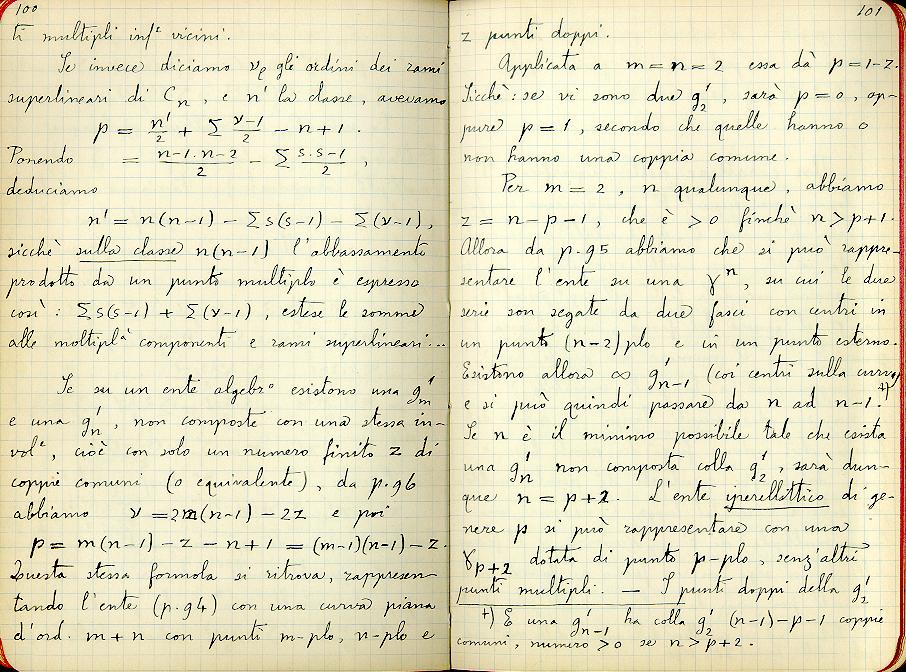 100
ti multipli inf.ᵗᵉ vicini.
Se invece diciamo νρ gli ordini dei rami
superlineari di Cₙ, e n' la classe, avevamo
p = n'/2 + Σ (ν-1)/2 - n + 1.
Ponendo = (n-1.n-2)/2 - Σ (s.s-1)/2,
deduciamo
n' = n(n-1) - Σ s(s-1) - Σ(ν-1),
sicchè sulla classe n(n-1) l'abbassamento
prodotto da un punto multiplo è espresso
così: Σ s(s-1) + Σ(ν-1), estese le somme
alle moltiplᵃ componenti e rami superlineari...
Se su un ente algebrᵒ esistono una g¹ₘ
e una g¹ₙ, non composte con una stessa in-
volᵉ, cioè con solo un numero finito z di
coppie comuni (o equivalente), da p. 96
abbiamo ν = 2m(n-1) - 2z e poi
p = m(n-1) - z - n + 1 = (m-1)(n-1) - z.
Questa stessa formola si ritrova, rappresen-
tando l'ente (p. 94) con una curva piana
d'ord. m+n con punti m-plo, n-plo e
101
z punti doppi.
Applicata a m = n = 2 essa dà p = 1-z.
Sicchè: se vi sono due g¹₂, sarà p = 0, op-
pure p = 1, secondo che quelle hanno o
non hanno una coppia comune.
Per m = 2, n qualunque, abbiamo
z = n-p-1, che è >0 finchè n > p+1.
Allora da p. 95 abbiamo che si può rappre-
sentare l'ente su una γⁿ, su cui le due
serie son segate da due fasci con centri in
un punto (n-2)plo e in un punto esterno.
Esistono allora ∞ g¹ₙ₋₁ (coi centri sulla curva)
e si può quindi passare da n ad n-1.⁺⁾
Se n è il minimo possibile tale che esista
una g¹ₙ non composta colla g¹₂, sarà dun-
que n = p+2. L'ente iperellittico di ge-
nere p si può rappresentare con una
γₚ₊₂ dotata di punto p-plo, senz'altri
punti multipli. — I punti doppi della g¹₂
+) E una g¹ₙ₋₁ ha colla g¹₂ (n-1)-p-1 coppie
comuni, numero >0 se n > p+2.